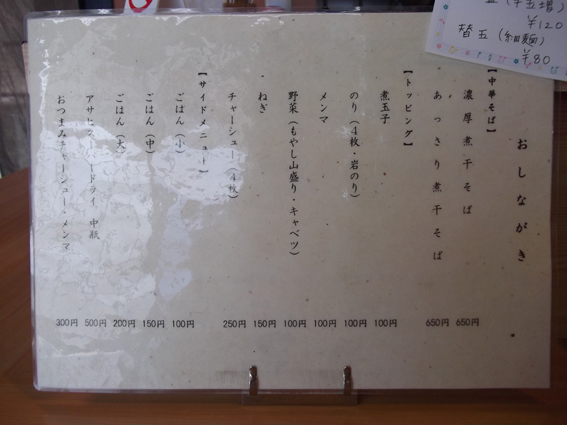 おしながき
【中華そば】
濃厚煮干そば 650円
あっさり煮干そば 650円
【トッピング】
煮玉子 100円
のり（4枚・岩のり） 100円
メンマ 100円
野菜（もやし山盛り・キャベツ） 100円
ねぎ 150円
チャーシュー（4枚） 250円
【サイドメニュー】
ごはん（小） 100円
ごはん（中） 150円
ごはん（大） 200円
アサヒスーパードライ 中瓶 500円
おつまみチャーシュー・メンマ 300円
￥120
替玉（細麺）
￥80